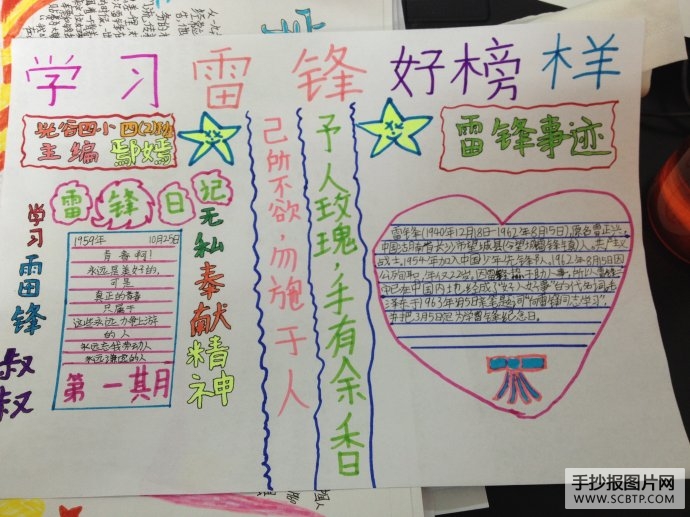 学习雷锋好榜样
光谷四小四(2)班
主编 鄢嫣
雷锋日记
学习雷锋叔叔
1959年 10月25日
青春啊！
永远是美好的，
可是
真正的青春
只属于
这些永远力争上游
的人
永远忘我劳动人
永远谦虚的人
第一其月
无私奉献精神
己所不欲，勿施于人
予人玫瑰，手有余香
雷锋事迹
雷锋（1940年12月18日-1962年8月15日），原名雷正兴，
中国湖南省长沙市望城县(今望城雷锋镇)人，共产主义
战士，1954年加入中国少年先锋队，1962年8月15日因
公殉职，年仅22岁，因
助人事，所以雷锋
中已在中国内地经成了“好人好事”的代名词，毛
泽东于1963年3月5日亲笔题词“向雷锋同志学习”，
并把3月5日定为学雷锋纪念日。
手抄报图片网
WWW.SCBTP.COM